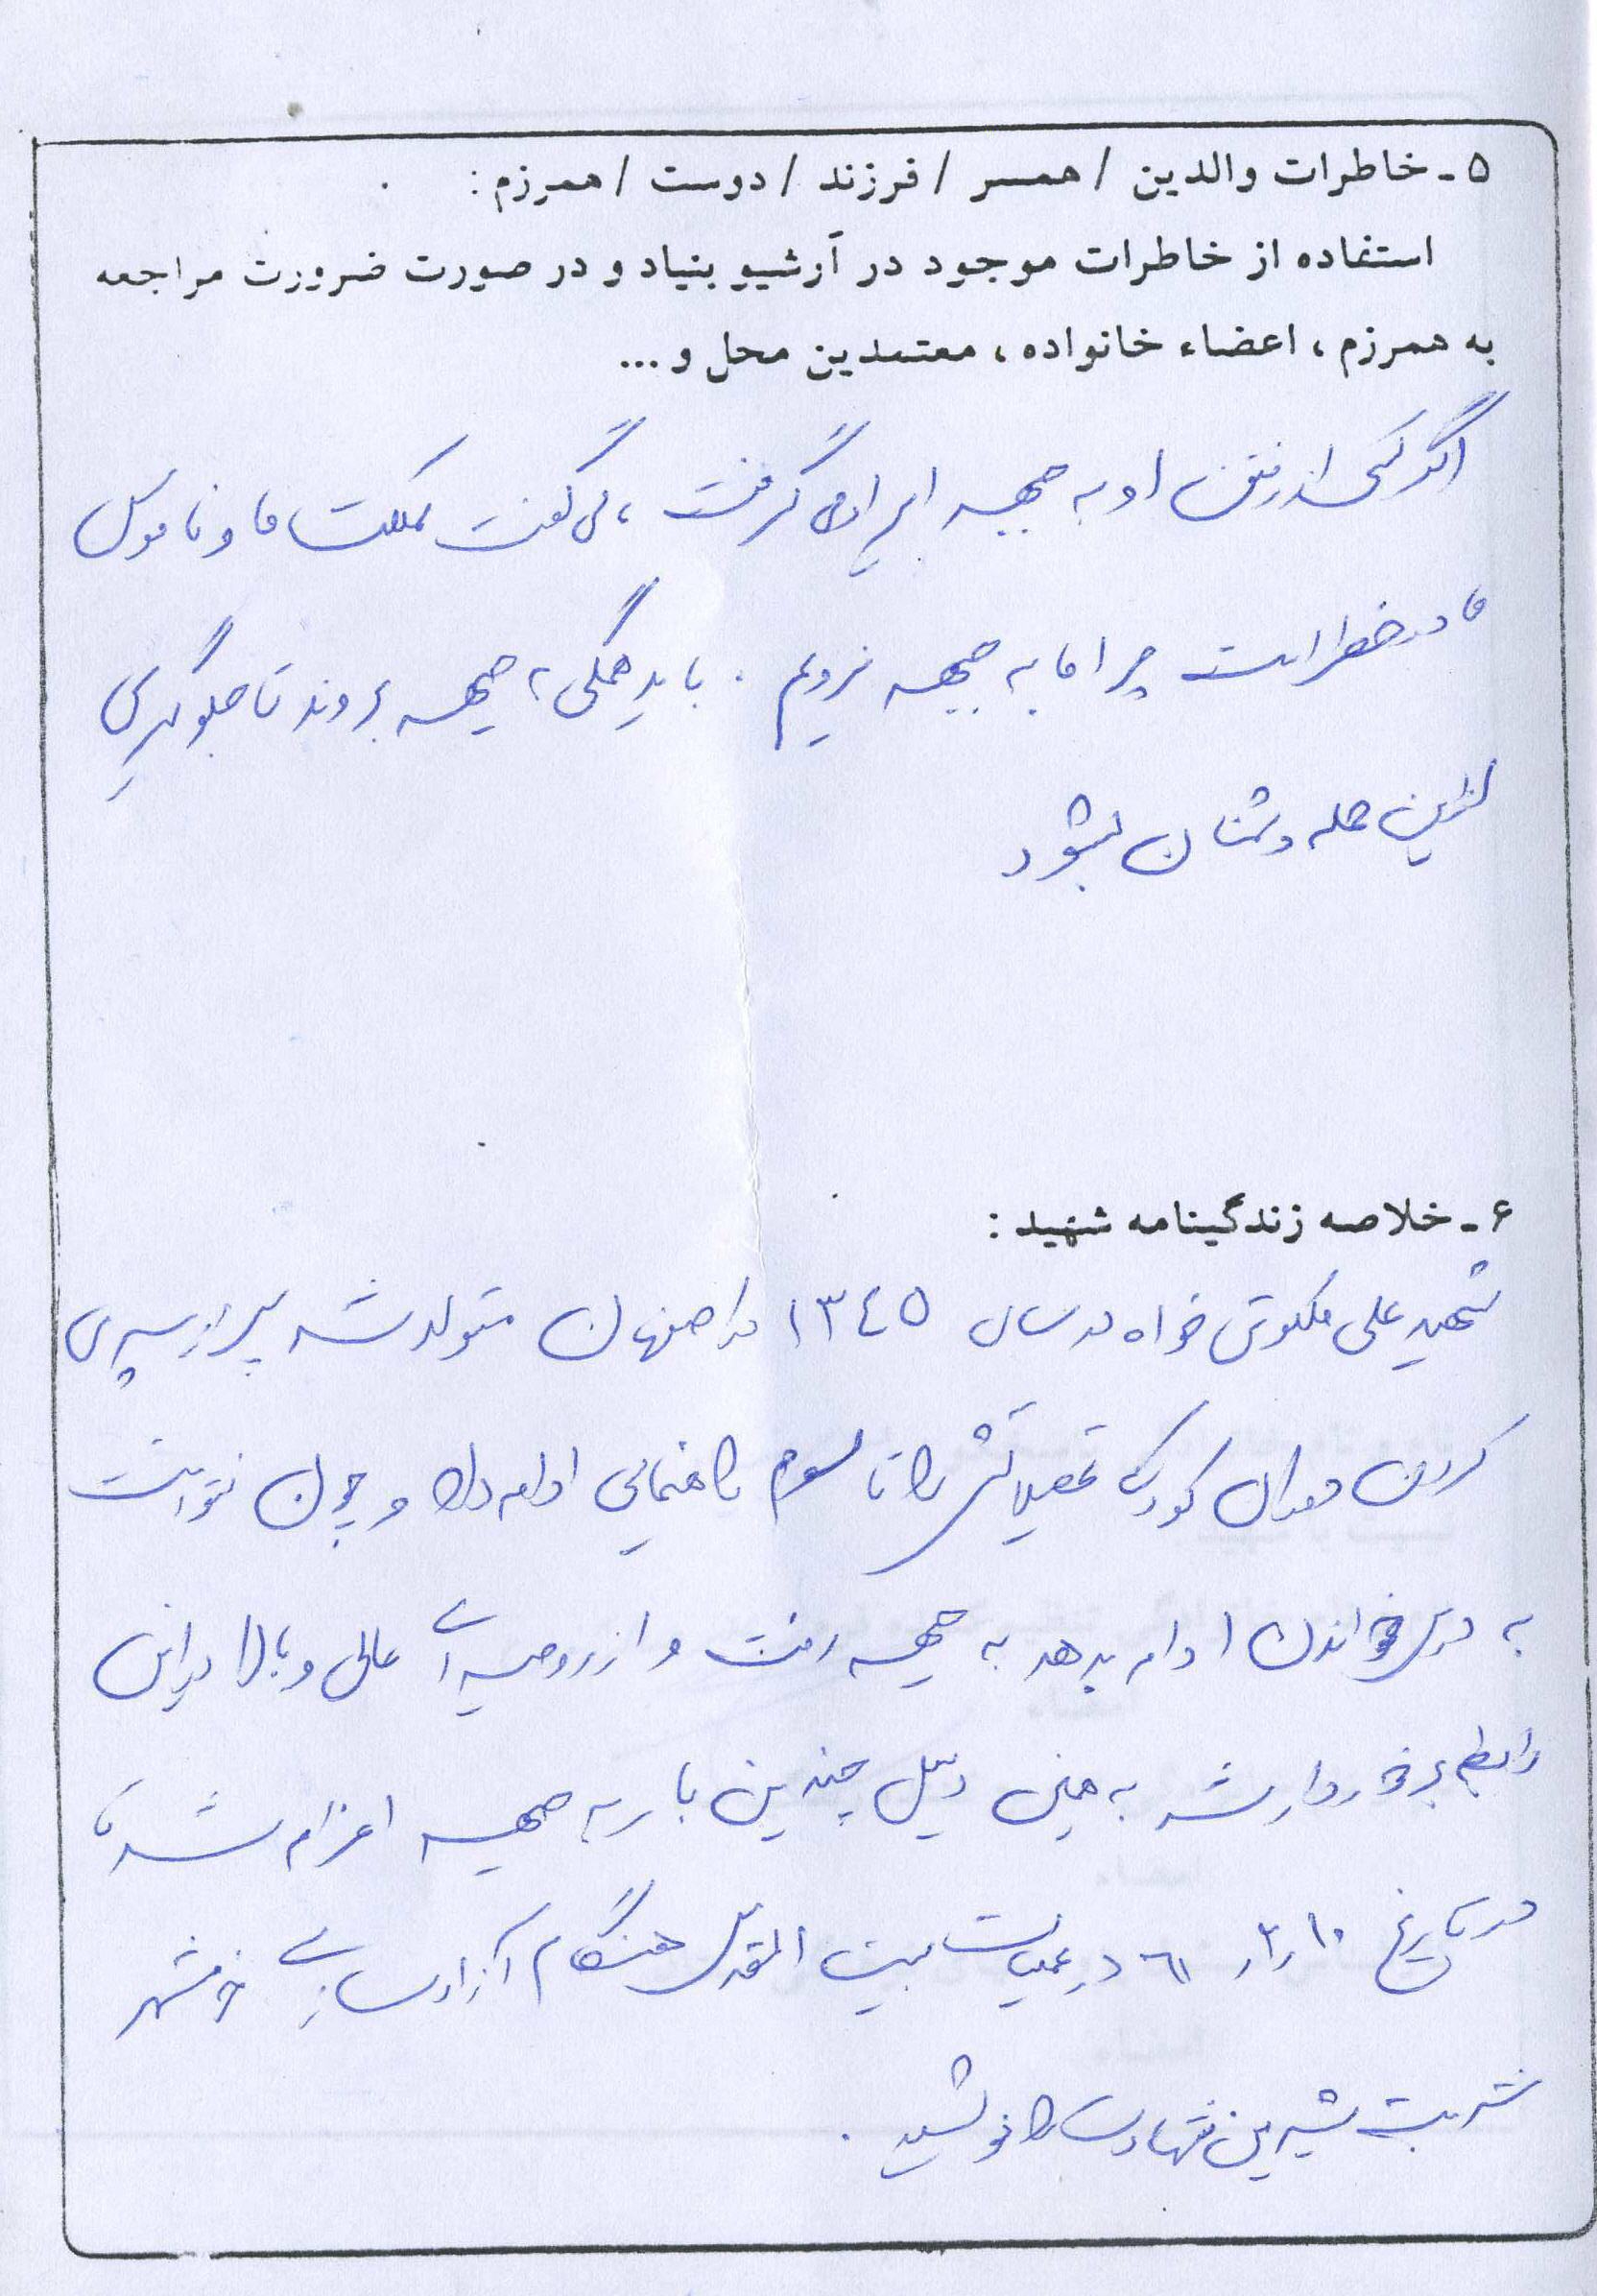 ۵ - خاطرات والدین / همسر / فرزند / دوست / همرزم :
استفاده از خاطرات موجود در آرشیو بنیاد و در صورت ضرورت مراجعه
به همرزم ، اعضاء خانواده ، معتمدین محل و ...
اگر کسی از رفتن او به جبهه ایراد می گرفت ، می گفت مملکت ما و ناموس
ما در خطر است چرا ما به جبهه نرویم . باید همگی به جبهه بروند تا جلوگیری
از این حمله دشمنان بشود
۶ - خلاصه زندگینامه شهید :
شهید علی ملکوتی خواه در سال ۱۳۴۵ در اصفهان متولد شد پس از سپری
کردن دوران کودکی تحصیلاتش را تا سوم راهنمایی ادامه داد و چون نتوانست
به درس خواندن ادامه بدهد به جبهه رفت و از روحیه ای عالی و بالا در این
رابطه برخوردار شد به همین دلیل چندین بار به جبهه اعزام شد و
در تاریخ ۱۰ / ۲ / ۶۱ در عملیات بیت المقدس هنگام آزادسازی خرمشهر
شربت شیرین شهادت را نوشید .